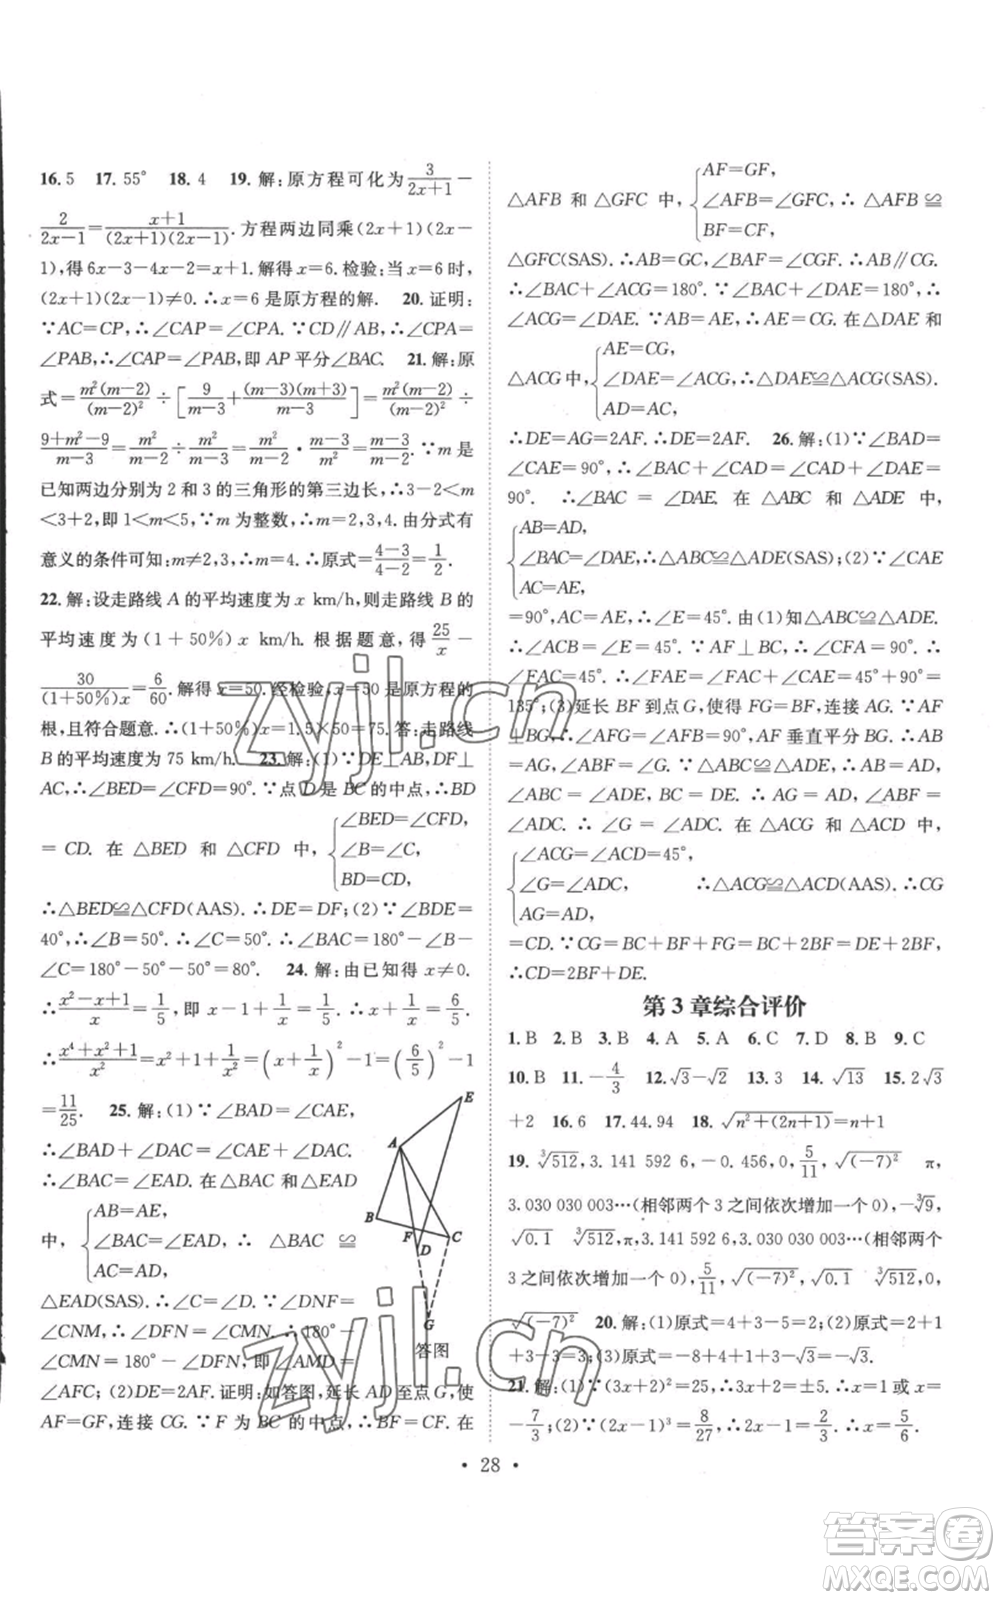 16. 5　17. 55°　18. 4　19. 解:原方程可化为 3/(2x+1) −
2/(2x−1) = (x+1)/((2x+1)(2x−1)). 方程两边同乘(2x+1)(2x−
1),得 6x−3−4x−2=x+1. 解得 x=6. 检验:当 x=6 时,
(2x+1)(2x−1)≠0. ∴x=6 是原方程的解.　20. 证明:
∵AC=CP,∴∠CAP=∠CPA. ∵CD∥AB,∴∠CPA=
∠PAB,∴∠CAP=∠PAB,即 AP 平分∠BAC.　21. 解:原
式= m²(m−2)/(m−2)² ÷ [9/(m−3) + (m−3)(m+3)/(m−3)] = m²(m−2)/(m−2)² ÷
(9+m²−9)/(m−3) = m²/(m−2) ÷ m²/(m−3) = m²/(m−2) · (m−3)/m² = (m−3)/(m−2). ∵m 是
已知两边分别为 2 和 3 的三角形的第三边长,∴3−2<m
<3+2,即 1<m<5,∵m 为整数,∴m=2,3,4. 由分式有
意义的条件可知:m≠2,3,∴m=4. ∴原式= (4−3)/(4−2) = 1/2.
22. 解:设走路线 A 的平均速度为 x km/h,则走路线 B 的
平均速度为(1+50%)x km/h. 根据题意,得 25/x −
30/((1+50%)x) = 6/60. 解得 x=50. 经检验,x=50 是原方程的
根,且符合题意. ∴(1+50%)x=1.5×50=75. 答:走路线
B 的平均速度为 75 km/h.　23. 解:(1)∵DE⊥AB,DF⊥
AC,∴∠BED=∠CFD=90°. ∵点 D 是 BC 的中点,∴BD
=CD. 在 △BED 和 △CFD 中, { ∠BED=∠CFD,
∠B=∠C,
BD=CD,
∴△BED≌△CFD(AAS). ∴DE=DF;(2)∵∠BDE=
40°,∴∠B=50°. ∴∠C=50°. ∴∠BAC=180°−∠B−
∠C=180°−50°−50°=80°.　24. 解:由已知得 x≠0.
∴(x²−x+1)/x = 1/5,即 x−1+1/x = 1/5. ∴x+1/x = 6/5.
∴(x⁴+x²+1)/x² = x²+1+1/x² = (x+1/x)²−1 = (6/5)²−1=
11/25.　25. 解:(1)∵∠BAD=∠CAE,
∴∠BAD+∠DAC=∠CAE+∠DAC.
∴∠BAC=∠EAD. 在△BAC 和△EAD
中, { AB=AE,
∠BAC=∠EAD, ∴ △BAC ≌
AC=AD,
△EAD(SAS). ∴∠C=∠D. ∵∠DNF=
∠CNM,∴∠DFN=∠CMN. ∴180°−
∠CMN=180°−∠DFN,即∠AMD=
∠AFC;(2)DE=2AF. 证明:如答图,延长 AD 至点 G,使
AF=GF,连接 CG. ∵F 为 BC 的中点,∴BF=CF. 在
E
A
B
F
C
D
G
答图
△AFB 和 △GFC 中, { AF=GF,
∠AFB=∠GFC, ∴△AFB≌
BF=CF,
△GFC(SAS). ∴AB=GC,∠BAF=∠CGF. ∴AB∥CG.
∴∠BAC+∠ACG=180°. ∵∠BAC+∠DAE=180°,∴
∠ACG=∠DAE. ∵AB=AE,∴AE=CG. 在△DAE 和
△ACG 中, { AE=CG,
∠DAE=∠ACG,∴△DAE≌△ACG(SAS).
AD=AC,
∴DE=AG=2AF. ∴DE=2AF.　26. 解:(1)∵∠BAD=
∠CAE=90°,∴∠BAC+∠CAD=∠CAD+∠DAE=
90°. ∴∠BAC=∠DAE. 在 △ABC 和 △ADE 中,
{ AB=AD,
∠BAC=∠DAE,∴△ABC≌△ADE(SAS);(2)∵∠CAE
AC=AE,
=90°,AC=AE,∴∠E=45°. 由(1)知△ABC≌△ADE,
∴∠ACB=∠E=45°. ∵AF⊥BC,∴∠CFA=90°. ∴
∠FAC=45°. ∴∠FAE=∠FAC+∠CAE=45°+90°=
135°;(3)延长 BF 到点 G,使得 FG=FB,连接 AG. ∵AF
⊥BG,∴∠AFG=∠AFB=90°,AF 垂直平分 BG. ∴AG=
AB,∠ABF=∠G. ∵△BAC≌△DAE,∴AB=AD,
∠ABC=∠ADE. ∴AG=AD,∠ABF=
∠ADC. ∴∠G=∠ADC. 在 △ACG 和 △ACD 中,
{ ∠ACG=∠ACD=45°,
∠G=∠ADC,　∴△ACG≌△ACD(AAS). ∴CG
AG=AD,
=CD. ∵CG=BC+BF+FG=BC+2BF=DE+2BF,
∴CD=2BF+DE.
第 3 章综合评价
1. B　2. B　3. B　4. A　5. A　6. C　7. D　8. B　9. C
10. B　11. −4/3　12. √3−√2　13. 3　14. √13　15. 2√3
+2　16. 6　17. 44.94　18. √(n²+(2n+1))=n+1
19. ∛512,3.141 592 6,−0.456,0,5/11,√(−7)²　π,
3.030 030 003…(相邻两个 3 之间依次增加一个 0),−∛9,
√0.1　∛512,π,3.141 592 6,3.030 030 003…(相邻两个
3 之间依次增加一个 0),5/11,√(−7)²,√0.1　∛512,0,
√(−7)²　20. 解:(1)原式=4+3−5=2;(2)原式=2+1
+3+3=9;(3)原式=−8+4+1+3−√3=−√3.
21. 解:(1)∵(3x+2)²=25,∴3x+2=±5. ∴x=1或x=
−7/3;(2)∵(2x−1)³=8/27,∴2x−1=2/3. ∴x=5/6.
· 28 ·
zyjl.cn
zyjl.cn
答案圈
MXQE.COM